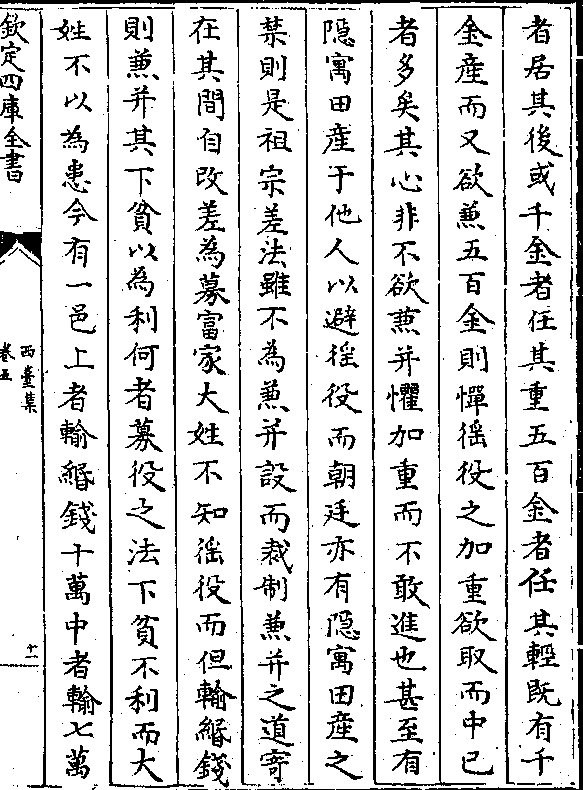 者居其後或千金者任其重五百金者任其輕既有千
金産而又欲兼五百金則憚徭役之加重欲取而中已
者多矣其心非不欲兼并懼加重而不敢進也甚至有
隠寓田産于他人以避徭役而朝廷亦有隠寓田産之
禁則是祖宗差法雖不為兼并設而裁制兼并之道寄
在其間自改差為募富家大姓不知徭役而但輸緡錢
則兼并其下貧以為利何者募役之法下貧不利而大
姓不以為患今有一邑上者輸緡錢十萬中者輸七萬
欽定四庫全書
西臺集
卷五
十一